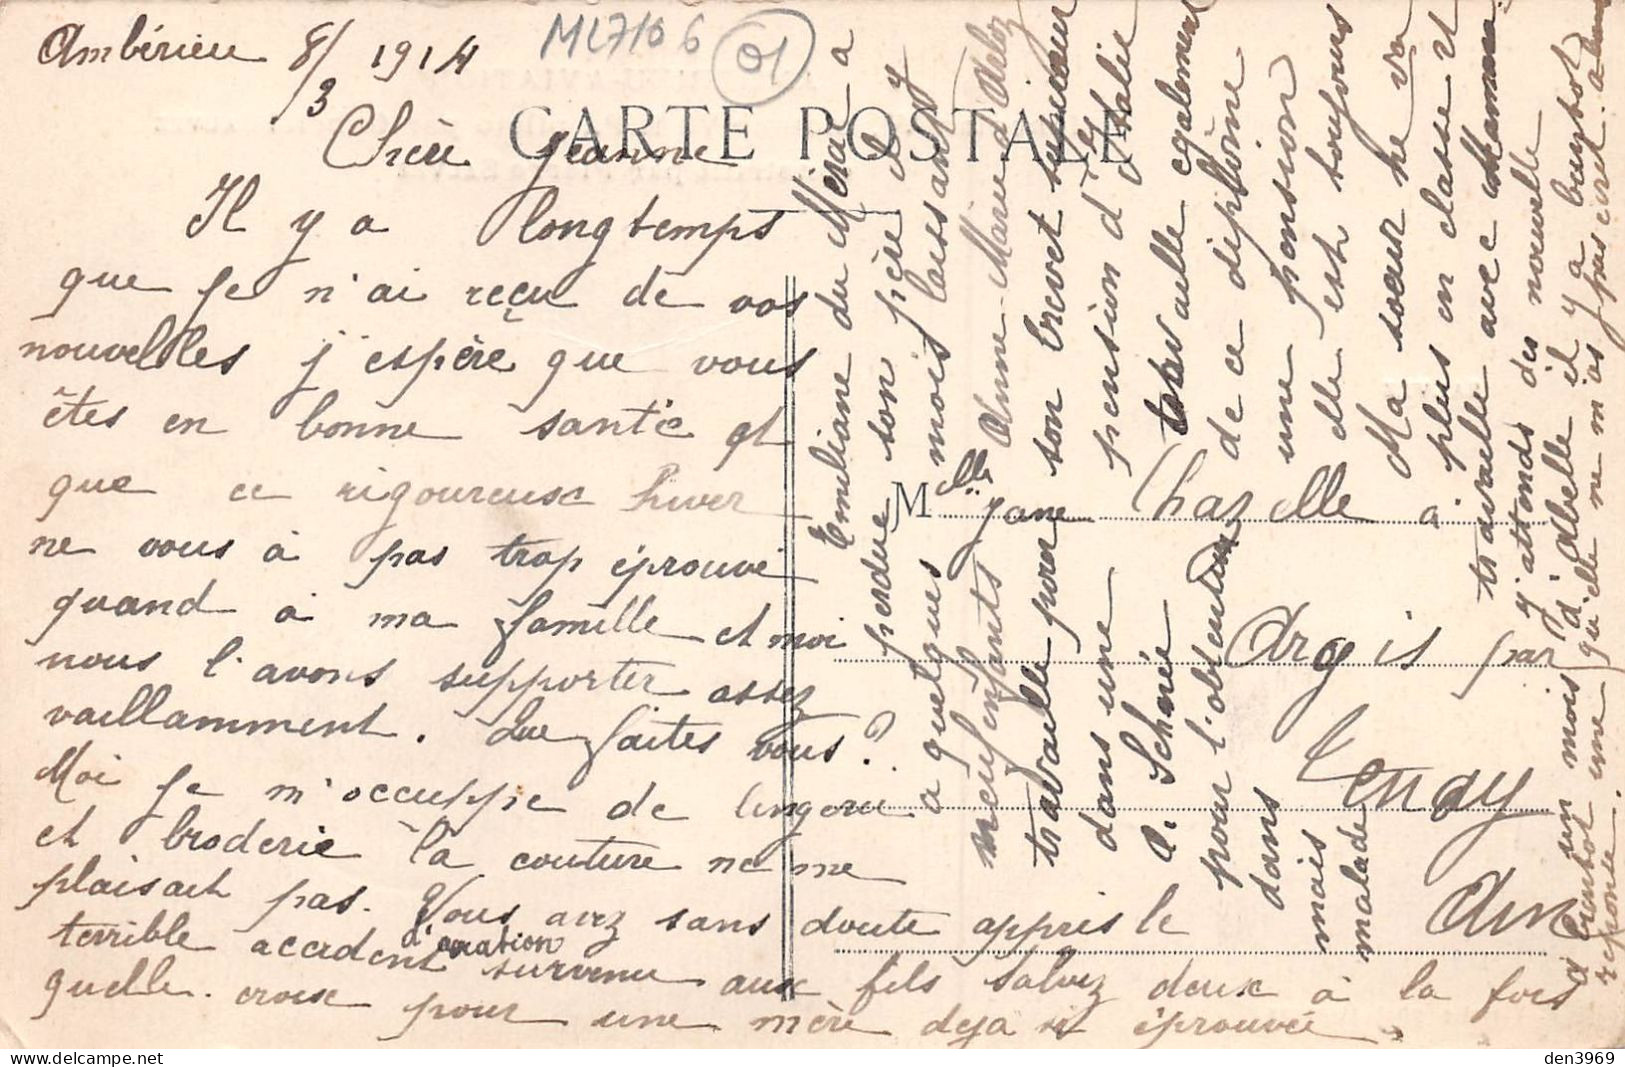 ML7106
01
CARTE POSTALE
Ambérieu 8/3 1914
Chère Jeanne
Il y a longtemps
que je n'ai reçu de vos
nouvelles j'espère que vous
êtes en bonne santé et
que ce rigoureux hiver
ne vous à pas trop éprouvé
quand à ma famille et moi
nous l'avons supporter assez
vaillamment. Que faites vous?
Moi je m'occuppe de lingerie
et broderie la couture ne me
plaisait pas. Vous avez sans doute appris le
terrible accident d'aviation survenu aux fils Salvez deux à la fois
quelle croix pour une mère deja si éprouvée.
Emeliane du Méral a
perdue son père il y
a quelques mois laissant
neuf enfants Anne-Marie
travaille pour son brevet supérieur
dans une pension d'Italie
A. Schnée travaille egalement
pour l'obtention de ce diplôme
dans une pension
mais elle est toujours
malade Ma soeur ne va
plus en classe et
travaille avec Maman
J'attends des nouvelle
d'Abelle il y a bientot
un mois qu'elle ne m'as pas ecrit
a bientot une
reponse.
Melle Jane Chazelle à
Argis par
Tenay
Ain
den3969